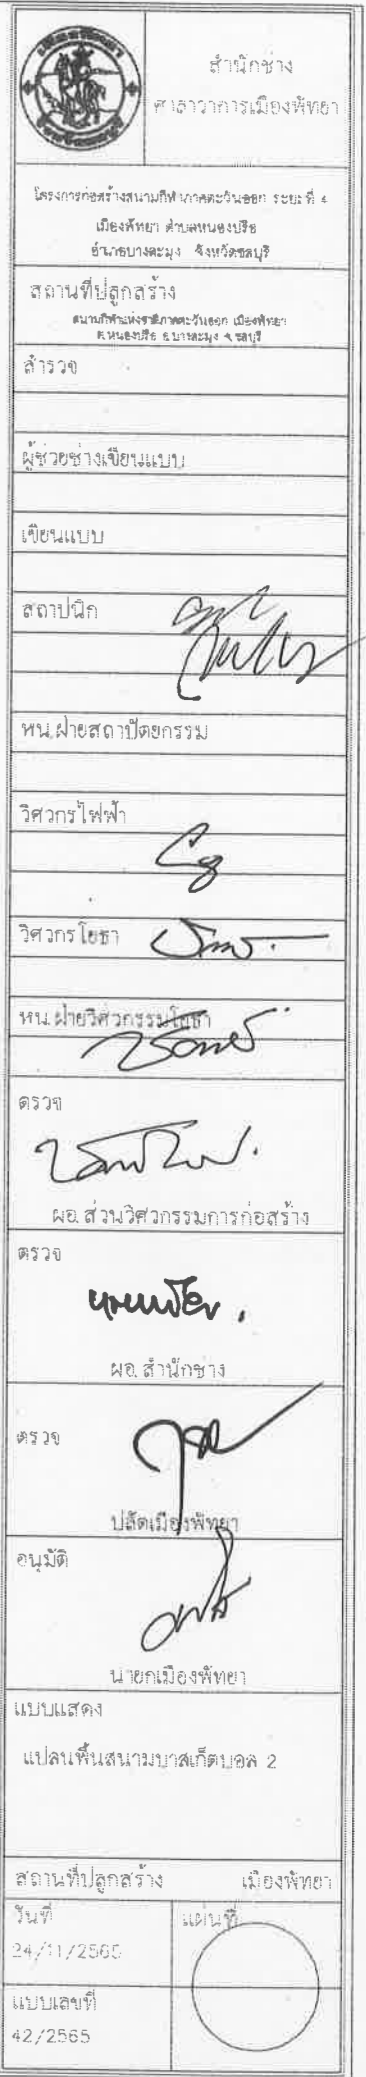 สำนักช่าง
ศาลาว่าการเมืองพัทยา
โครงการก่อสร้างสนามกีฬาภาคตะวันออก ระยะที่ 4
เมืองพัทยา ตำบลหนองปรือ
อำเภอบางละมุง จังหวัดชลบุรี
สถานที่ปลูกสร้าง
สนามกีฬาแห่งชาติภาคตะวันออก เมืองพัทยา
ต.หนองปรือ อ.บางละมุง จ.ชลบุรี
สำรวจ
ผู้ช่วยช่างเขียนแบบ
เขียนแบบ
สถาปนิก
หน.ฝ่ายสถาปัตยกรรม
วิศวกรไฟฟ้า
วิศวกรโยธา
หน.ฝ่ายวิศวกรรมโยธา
ตรวจ
ผอ.ส่วนวิศวกรรมการก่อสร้าง
ตรวจ
ผอ.สำนักช่าง
ตรวจ
ปลัดเมืองพัทยา
อนุมัติ
นายกเมืองพัทยา
แบบแสดง
แปลนพื้นสนามบาสเก็ตบอล 2
สถานที่ปลูกสร้าง เมืองพัทยา
วันที่ แผ่นที่
24/11/2565
แบบเลขที่
42/2565